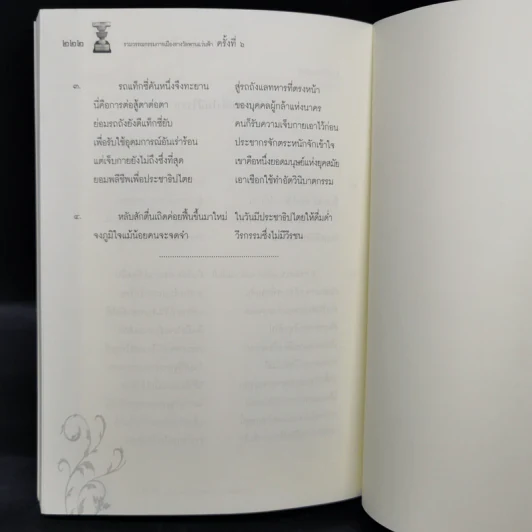 ๒๒๒ รางวรรณกรรมการเมืองรางวัลพานแว่นฟ้า ครั้งที่ ๖
๓. รถแท็กซี่คันหนึ่งจึงทะยาน สู่รถถังแลทหารที่ตรงหน้า
นี่คือการต่อสู้ตาต่อตา ของบุคคลผู้กล้าแห่งนาคร
ย่อมรถถังยังดีแท็กซี่ยับ คนก็รับความเจ็บกายเอาไว้ก่อน
เพื่อรับใช้อุดมการณ์อันเร่าร้อน ประชากรจักตระหนักจักเข้าใจ
แต่เจ็บกายยังไม่ถึงซึ่งที่สุด เขาคือหนึ่งยอดมนุษย์แห่งยุคสมัย
ยอมพลีชีพเพื่อประชาธิปไตย เอาเชือกใช้ทำอัตวินิบาตกรรม
๔. หลับสักตื่นเถิดค่อยฟื้นขึ้นมาใหม่ ในวันมีประชาธิปไตยให้ดื่มด่ำ
จงภูมิใจแม้น้อยคนจะจดจำ วีรกรรมซึ่งไม่มีวีรชน